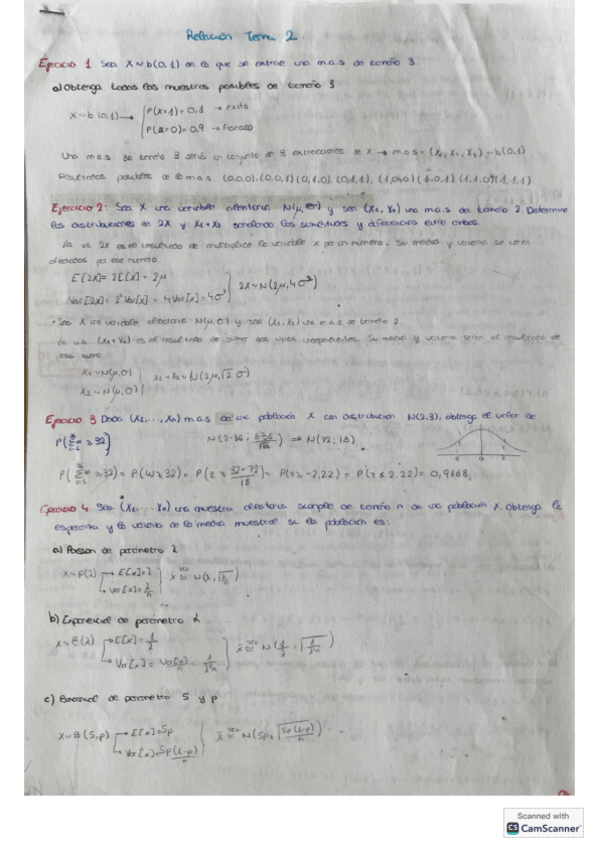 Relación Tema 2.
Ejercicio 1 Sea X~b(0,1) de la que se extrae una m.a.s de tamaño 3.
a) Obtenga todas las muestras posibles de tamaño 3
X~b(0,1) → P(X=1)=0,1 → éxito
P(X=0)=0,9 → fracaso
Una m.a.s de tamaño 3 sería un conjunto de 3 extracciones de X → m.a.s=(X1,X2,X3)~b(0,1)
Resultados posibles de la m.a.s. (0,0,0),(0,0,1)(0,1,0),(0,1,1),(1,0,0)(1,0,1)(1,1,0)(1,1,1)
Ejercicio 2: Sea X una variable aleatoria N(μ,σ) y sea (X1,X2) una m.a.s de tamaño 2. Determine
las distribuciones de 2X y X1+X2 señalando las similitudes y diferencias entre ambas.
La va 2X es el resultado de multiplicar la variable X por un número. Su media y varianza se verán
afectadas por ese número.
E[2X]=2E[X]=2μ
Var[2X]=2²Var[X]=4Var[X]=4σ² } 2X~N(2μ,4σ²)
• Sea X una variable aleatoria N(μ,σ) y sea (X1,X2) una m.a.s de tamaño 2.
La v.a (X1+X2) es el resultado de sumar dos v.a independientes. Su media y varianza serán el resultado de
esa suma
X1~N(μ,σ)
X2~N(μ,σ) } X1+X2~N(2μ,√2 σ)
Ejercicio 3 Dada (X1,...,Xn) m.a.s de una población X con distribución N(2,3), obtenga el valor de
P(Σ ≥32) N(2·36; ) ⇒ N(72;18)
P(Σ ≥32)=P(W≥32)=P(Z≥ 32-72/18)=P(Z≥-2,22)=P(Z≤2,22)=0,9868
Ejercicio 4 Sea (X1,...Xn) una muestra aleatoria simple de tamaño n de una población X. Obtenga la
esperanza y la varianza de la media muestral si la población es:
a) Poisson de parámetro λ
X~P(λ) → E[X]=λ
→ Var[X]=λ/n } x̄ ≅ N(λ,√λ/n)
b) Exponencial de parámetro λ
X~E(λ) → E[X]=1/λ
→ Var[X]=Var[X]/n=1/λ²n } x̄ ≅ N(1/λ,√1/λ²n)
c) Binomial de parámetro 5 y p
X~B(5,p) → E[X]=5p
→ Var[X]=5p(1-p)/n } x̄ ≅ N(5p,√5p(1-p)/n)
Scanned with
CS CamScanner